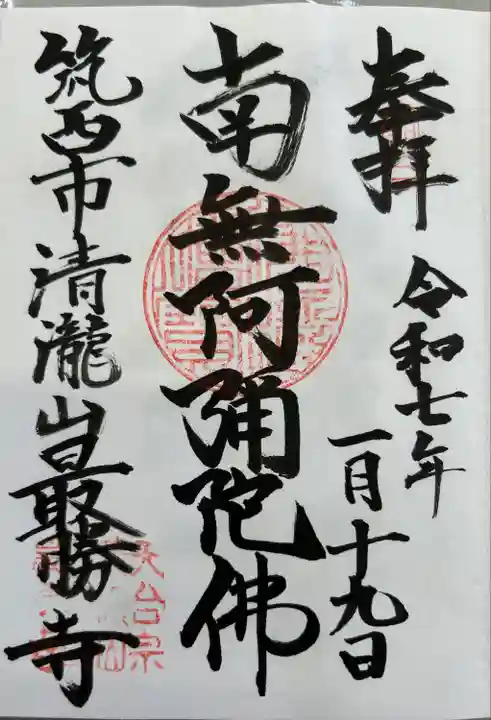 奉拝
令和七年
一月十九日
南無阿彌陀佛
筑西市清瀧山最勝寺
天台宗